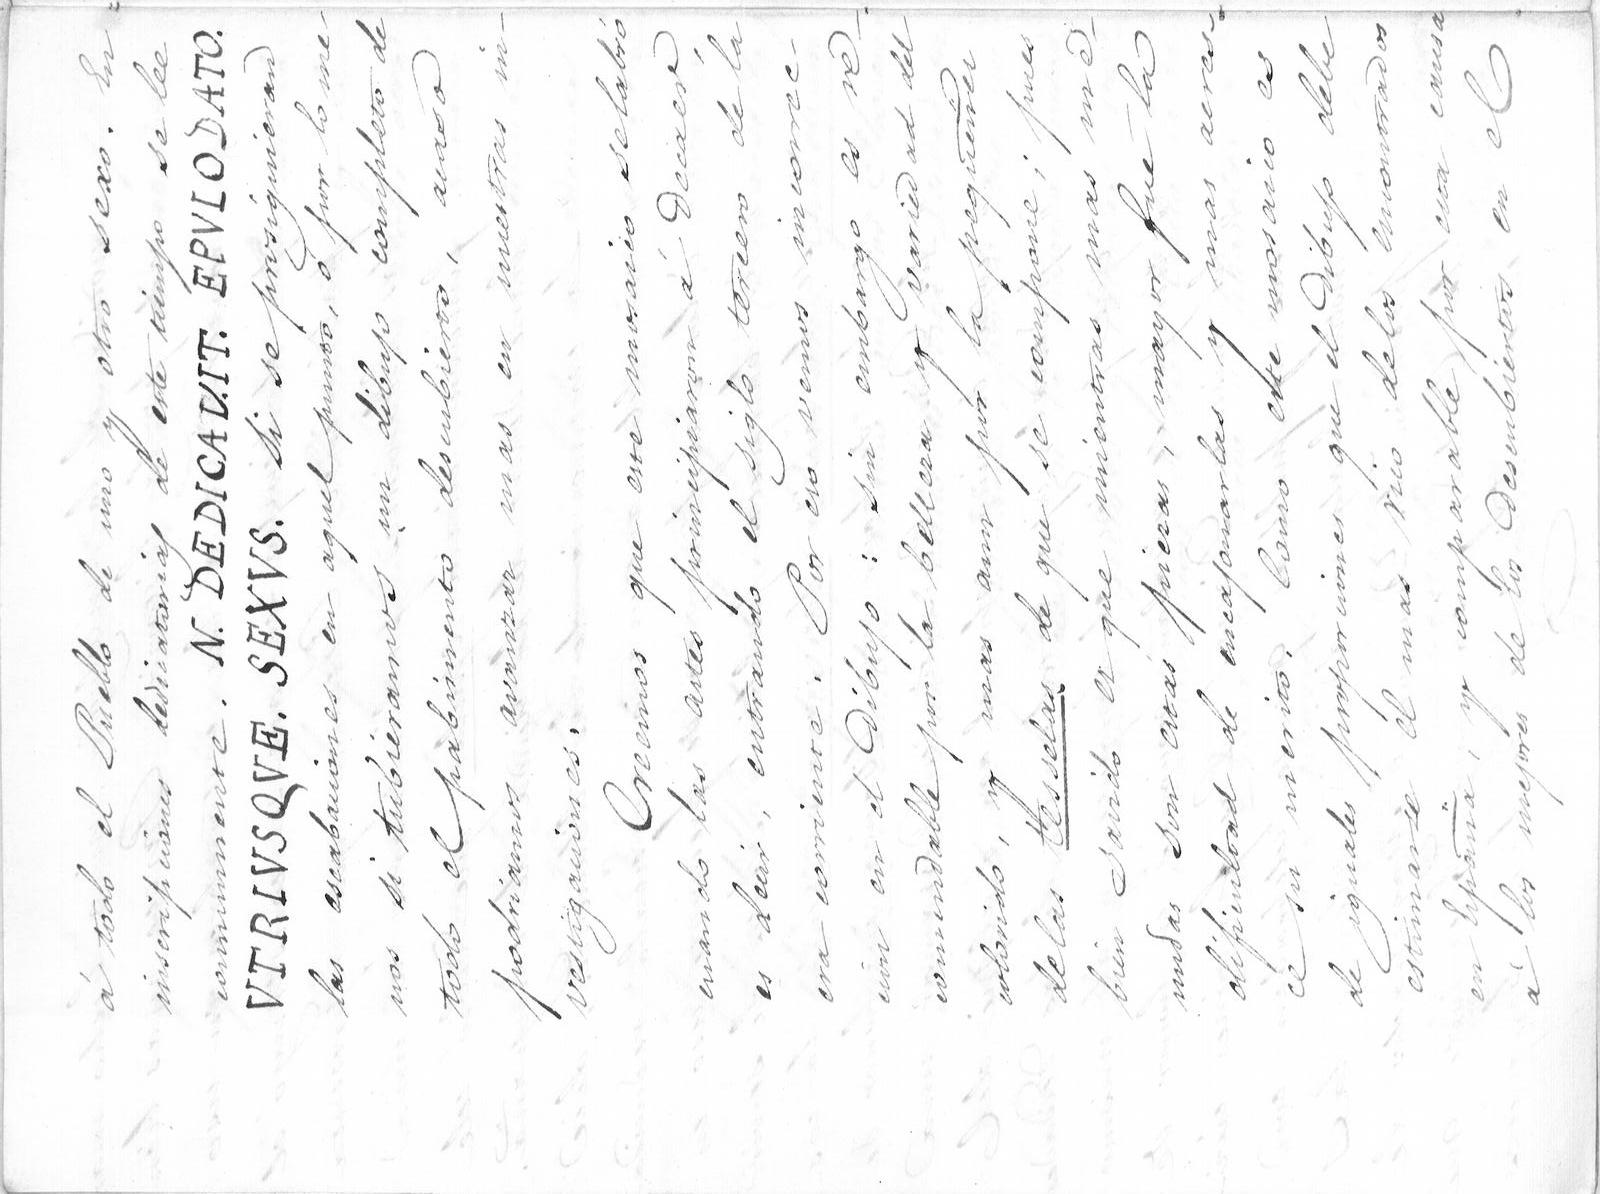 á todo el Pueblo de uno y otro sexo. En
inscripciones dedicatorias de este tiempo se lee
comunmente. N. DEDICAVIT. EPVLO DATO.
VTRIVSQVE. SEXVS. Si se prosiguieran
las escabaciones en aquel punto, ó por lo me-
nos si tubieramos un dibujo completo de
todo el pabimento descubierto, acaso
podriamos avanzar mas en nuestras in-
vestigaciones.
Creemos que este mosaico se labró
cuando las artes principiaron á decaer
es decir, entrando el siglo tercero de la
era corriente. Por eso vemos incorrec-
cion en el dibujo: sin embargo es re-
comendable por la belleza y variedad del
colorido, y mas aun por la pequeñez
de las tesselas de que se compone; pues
bien sabido es que mientras mas me-
nudas son estas piezas, mayor fue la
dificultad de encajonarlas y mas acre-
ce su merito. Como este mosaico es
de iguales proporciones que el dibujo debe
estimarse el mas rico de los encontrados
en España, y comparable por esta causa
á los mejores de los descubiertos en el